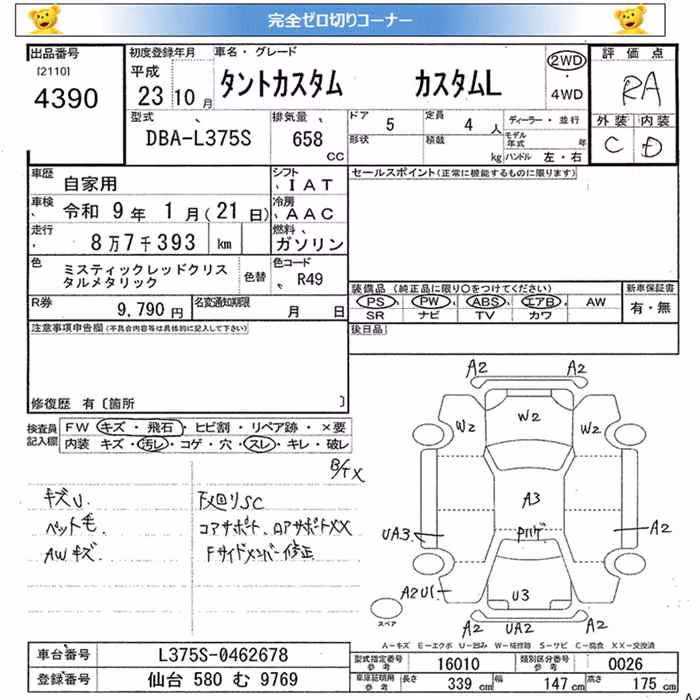 完全ゼロ切りコーナー
出品番号
[2110]
4390
初度登録年月
平成
23 10月
車名・グレード
タントカスタム カスタムL
2WD
・
4WD
評価点
RA
外装 内装
C D
型式
DBA-L375S
排気量
658
CC
ドア
5
定員
4 人
ディーラー・並行
形状
積載
kg
モデル年式 年
ハンドル 左・右
車歴
自家用
シフト
IAT
車検
令和 9年 1月(21日)
冷房
AAC
走行
8万7千393 km
燃料
ガソリン
色
ミスティックレッドクリスタルメタリック
色替
色コード
R49
R券
9,790円
名変通知期限
月 日
セールスポイント(正常に機能するものに限ります)
装備品 (純正品に限り○をつけてください)
PS PW ABS エアB AW
SR ナビ TV カワ
新車保証書
有・無
後日品
注意事項申告欄(不具合内容等は具体的に記入して下さい)
修復歴 有〔箇所 〕
検査員記入欄
FW キズ・飛石・ヒビ割・リペア跡・×要
内装 キズ・汚レ・コゲ・穴・スレ・キレ・破レ
B/T X
キズU
ペット毛
AWキズ
下廻りSC
コアサポート、ロアサポートXX
Fサイドメンバー修正
A2 A2
W2 W2 W2
A3
UA3 Pハゲ A2
A2U1 U3
A2 UA2 A2
スペア
A-キズ E-エクボ U-凹み W-補修跡 S-サビ C-腐食 XX-交換済
車台番号
L375S-0462678
登録番号
仙台 580 む 9769
型式指定番号
参考
16010
類別区分番号
参考
0026
車庫証明用
参考
長さ
339 cm
幅
147 cm
高さ
175 cm